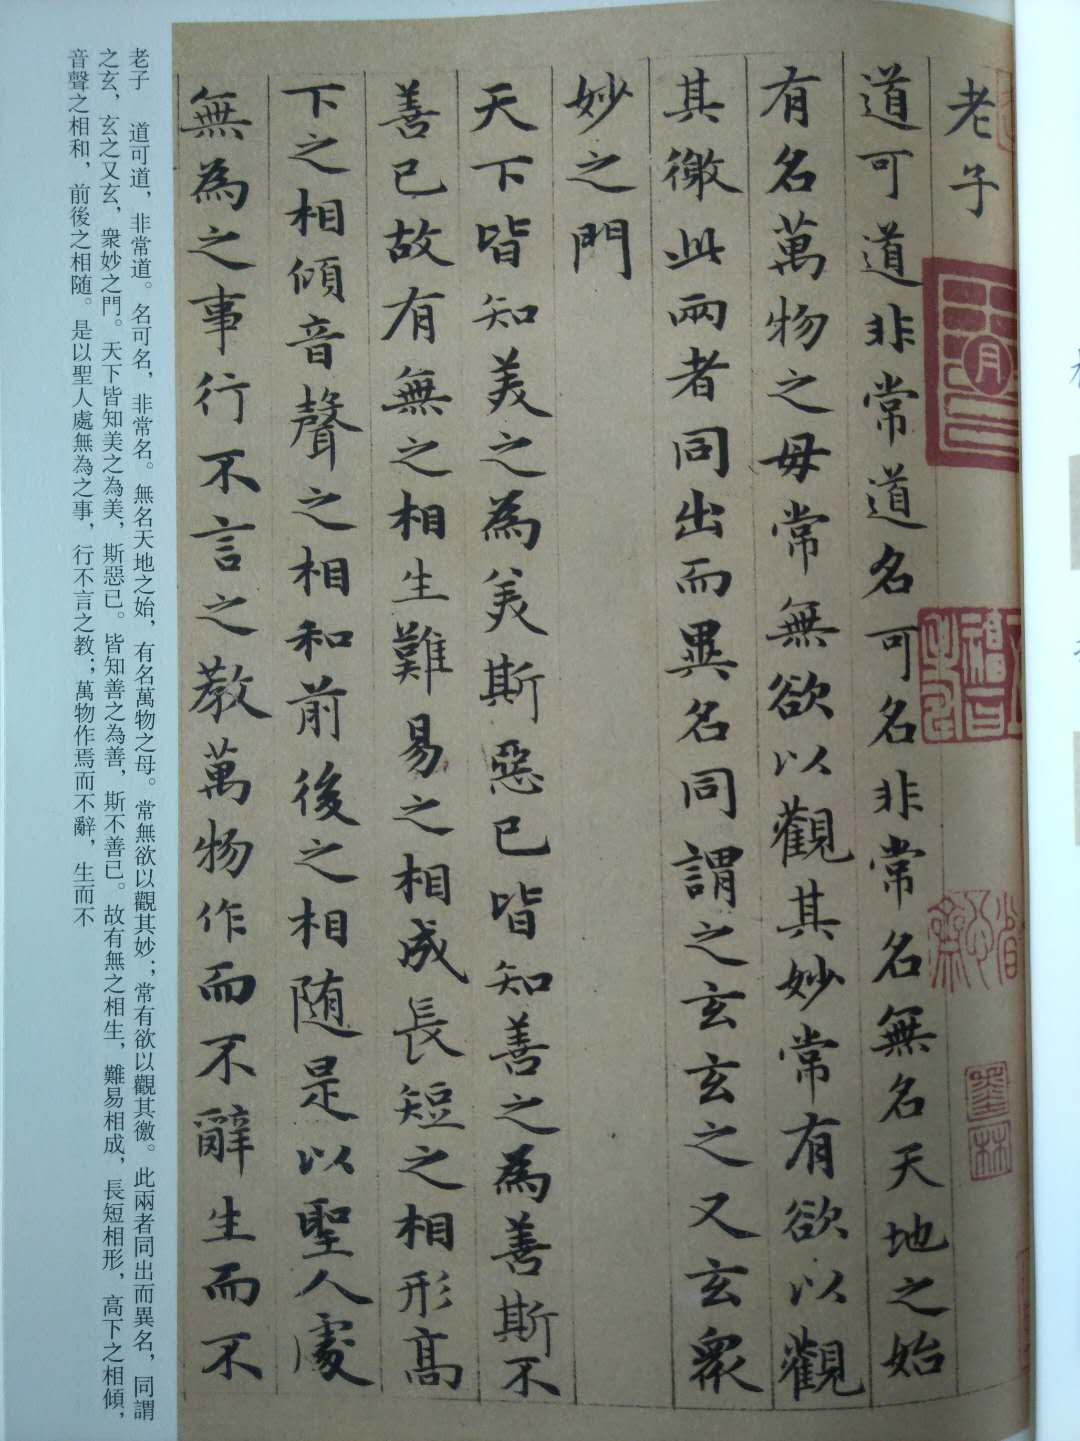 老子
道可道非常道名可名非常名無名天地之始
有名萬物之母常無欲以觀其妙常有欲以觀
其徼此兩者同出而異名同謂之玄玄之又玄衆
妙之門
天下皆知美之為美斯惡已皆知善之為善斯不
善已故有無之相生難易之相成長短之相形高
下之相傾音聲之相和前後之相随是以聖人處
無為之事行不言之教萬物作而不辭生而不
墨林
老子　道可道，非常道。名可名，非常名。無名天地之始，有名萬物之母。常無欲以觀其妙；常有欲以觀其徼。此兩者同出而異名，同謂
之玄，玄之又玄，衆妙之門。天下皆知美之為美，斯惡已。皆知善之為善，斯不善已。故有無之相生，難易相成，長短相形，高下之相傾，
音聲之相和，前後之相随。是以聖人處無為之事，行不言之教；萬物作焉而不辭，生而不